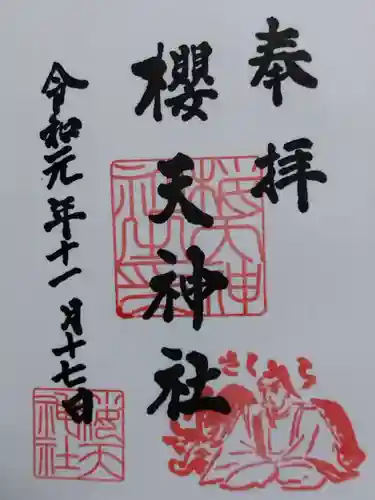 奉拝
櫻天神社
令和元年十一月十七日
櫻天神社之印
さくら
櫻天神社